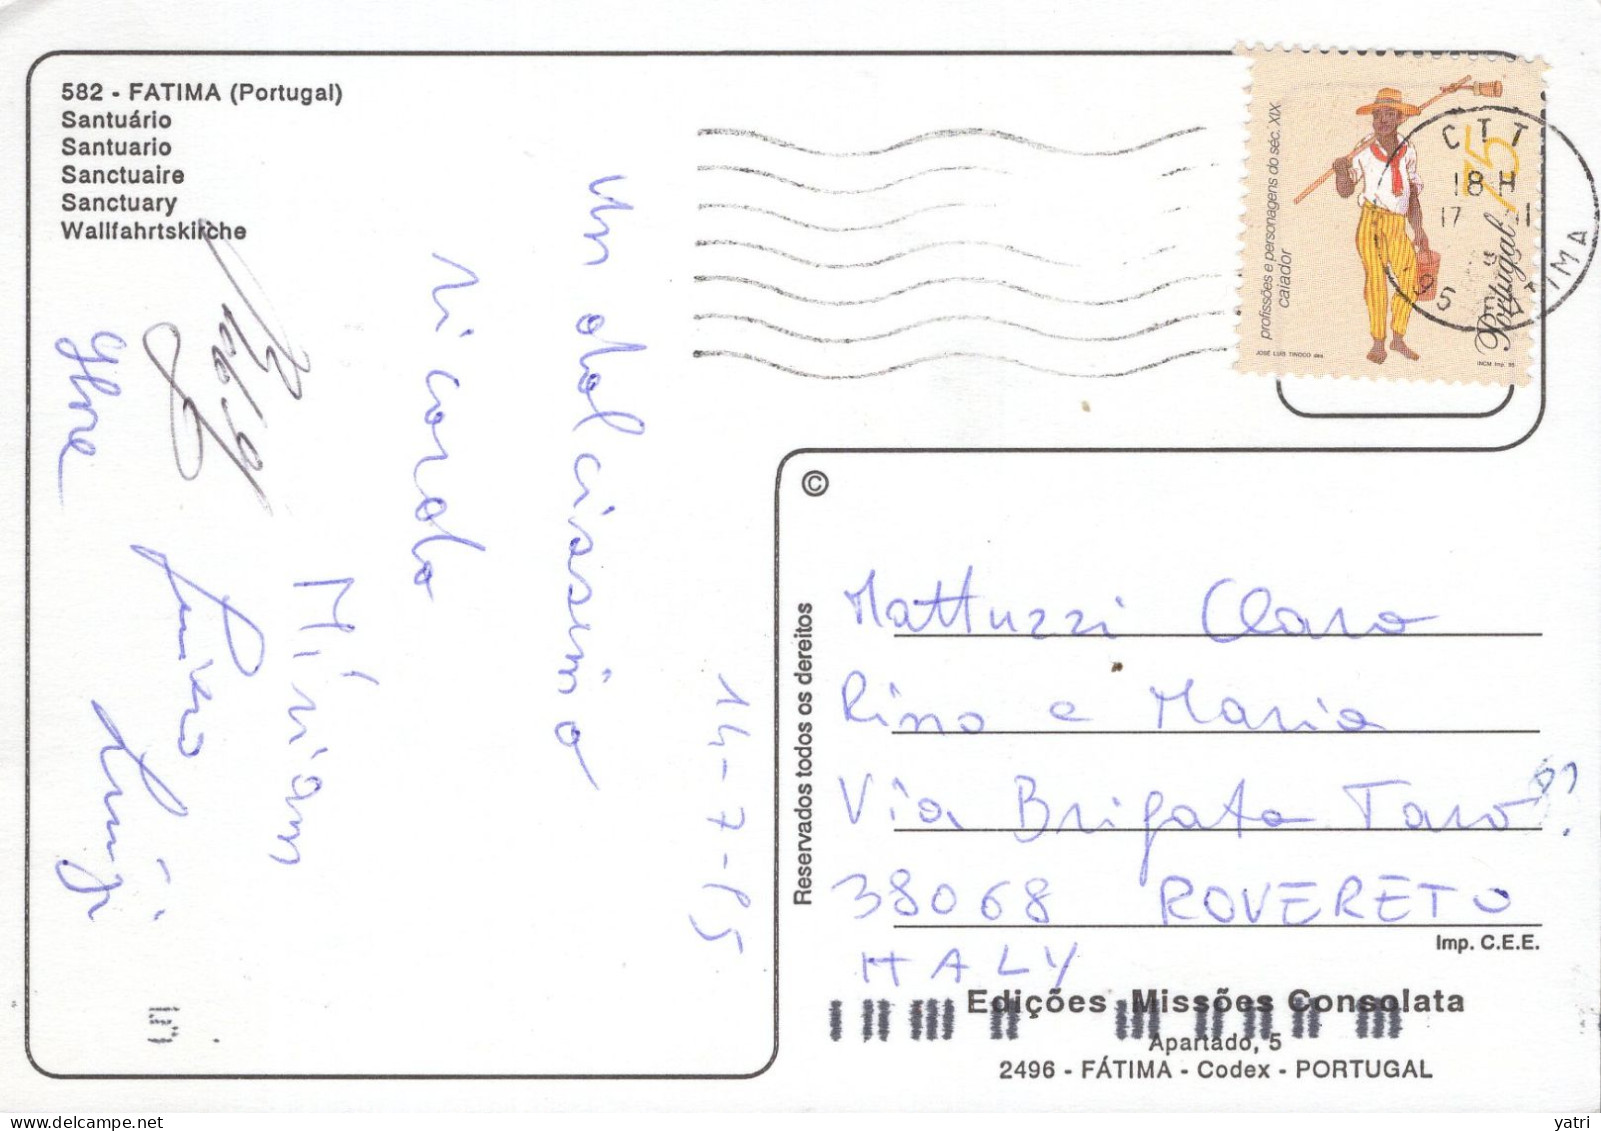 582 - FATIMA (Portugal)
Santuário
Santuario
Sanctuaire
Sanctuary
Wallfahrtskirche
14-7-95
Un dolcissimo
ricordo
Miriam
Luigi
profissões e personagens do séc. XIX
caiador
JOSÉ LUIS TINOCO des.
INCM Imp. 95
75
Portugal
CTT
18H
17
95
©
Reservados todos os dereitos
Mattuzzi Clara
Rino e Maria
Via Brigata Taro
38068 ROVERETO
ITALY
Imp. C.E.E.
Edições Missões Consolata
Apartado, 5
2496 - FÁTIMA - Codex - PORTUGAL
yatri